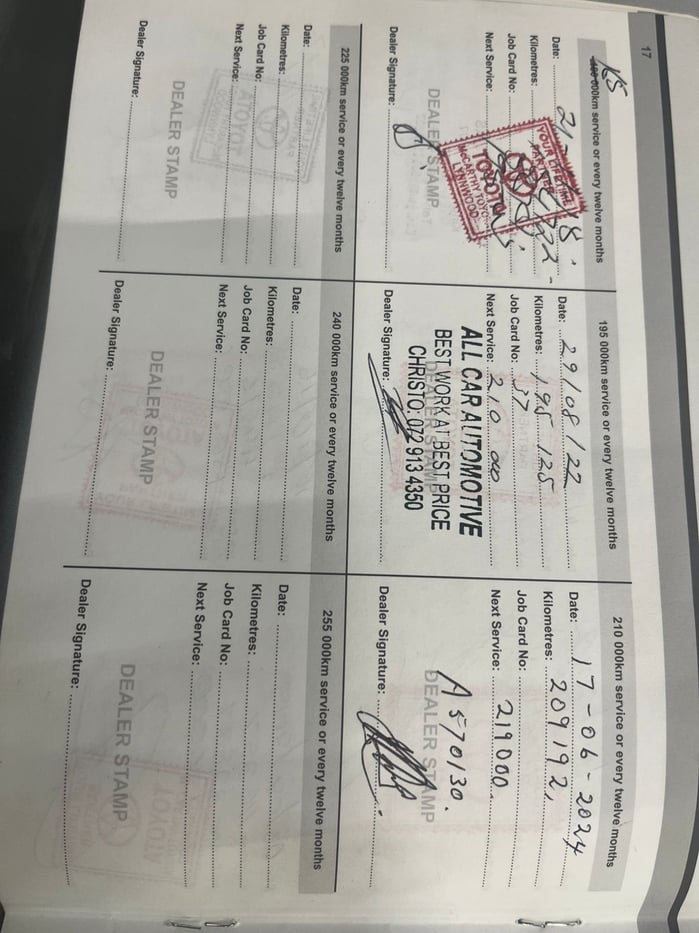 17
KS
180 000km service or every twelve months
Date:
Kilometres:
Job Card No:
Next Service:
YOUR LIFETIME
PARTNER
TOYOTA
McCARTHY TOYOTA
LYNNWOOD
DEALER STAMP
Dealer Signature:
195 000km service or every twelve months
Date: 29/08/22
Kilometres: 195 125
Job Card No: 37
Next Service: 210 000
ALL CAR AUTOMOTIVE
BEST WORK AT BEST PRICE
CHRISTO: 072 913 4350
DEALER STAMP
Dealer Signature:
210 000km service or every twelve months
Date: 17-06-2024
Kilometres: 209192
Job Card No:
Next Service: 219000
A570130.
DEALER STAMP
Dealer Signature:
225 000km service or every twelve months
Date:
Kilometres:
Job Card No:
Next Service:
DEALER STAMP
Dealer Signature:
240 000km service or every twelve months
Date:
Kilometres:
Job Card No:
Next Service:
DEALER STAMP
Dealer Signature:
255 000km service or every twelve months
Date:
Kilometres:
Job Card No:
Next Service:
DEALER STAMP
Dealer Signature: